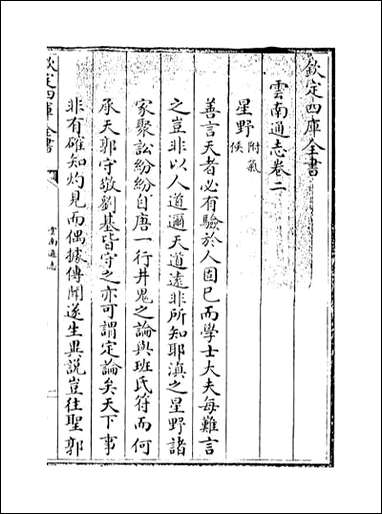 欽定四庫全書
雲南通志卷二
星野附氣候
善言天者必有驗於人固已而學士大夫每難言
之豈非以人道邇天道遠非所知耶滇之星野諸
家聚訟紛紛自唐一行井鬼之論與班氏符而何
承天郭守敬劉基皆守之亦可謂定論矣天下事
非有確知灼見而偶據傳聞遂生異説豈往聖郭
欽定四庫全書
雲南通志